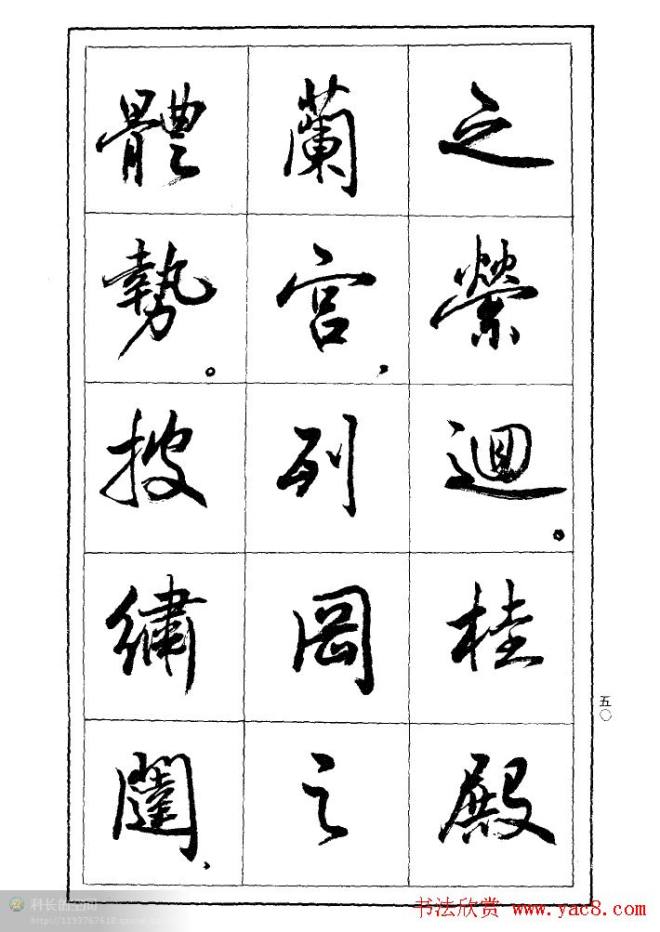 之縈迴。桂殿
蘭宮，列岡之
體勢。披繡闥，
五〇
科长的空间
书法欣赏 www.yac8.com